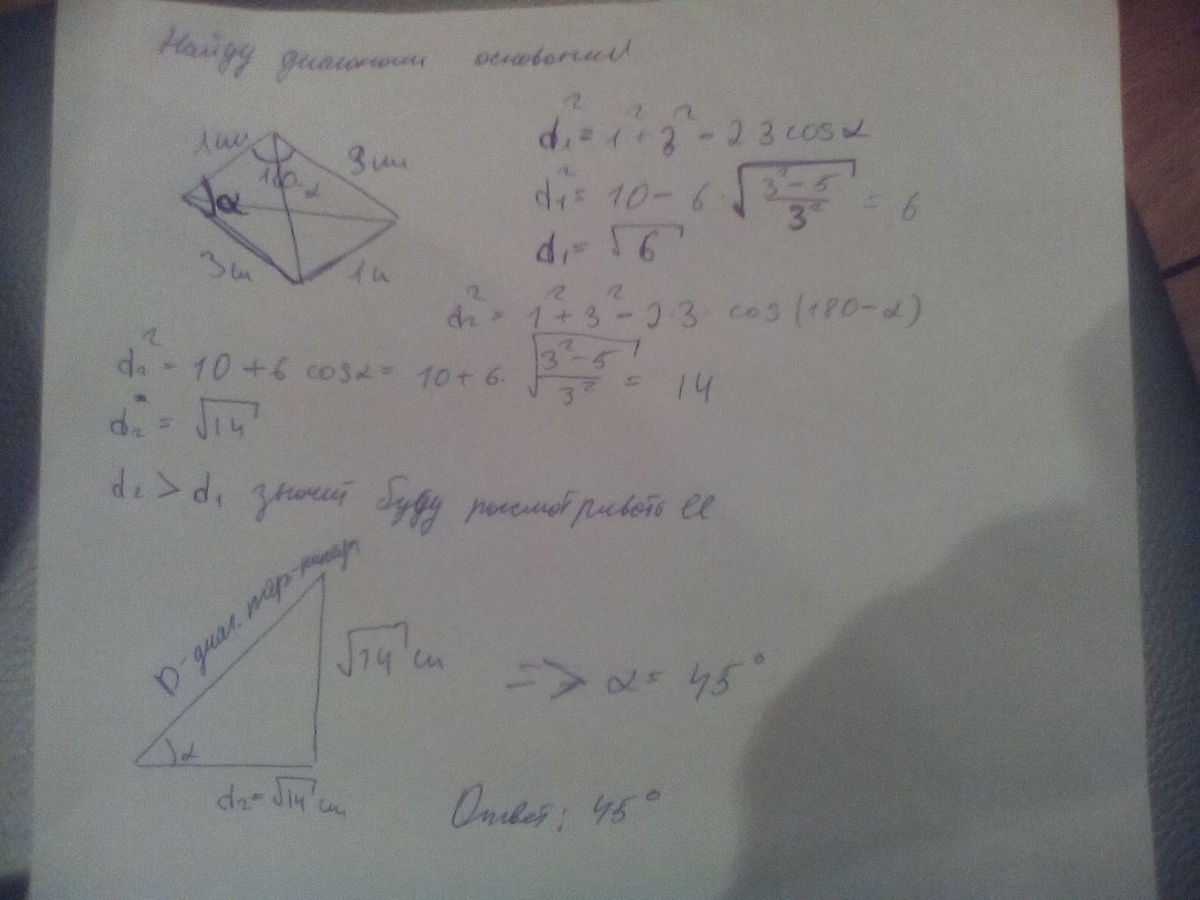 Найду диагонали основания
1 см
3 см
180-α
α
3 см
1 см
d₁² = 1² + 3² - 2 3 cos α
d₁² = 10 - 6 · √((3² - 5)/3²) = 6
d₁ = √6
d₂² = 1² + 3² - 2·3· cos (180-α)
d₂² = 10 + 6 cos α = 10 + 6 · √((3² - 5)/3²) = 14
d₂ = √14
d₂ > d₁ значит буду рассматривать её
D - диаг. пар-пипед
√14 см
α
d₂ = √14 см
=> α = 45°
Ответ: 45°